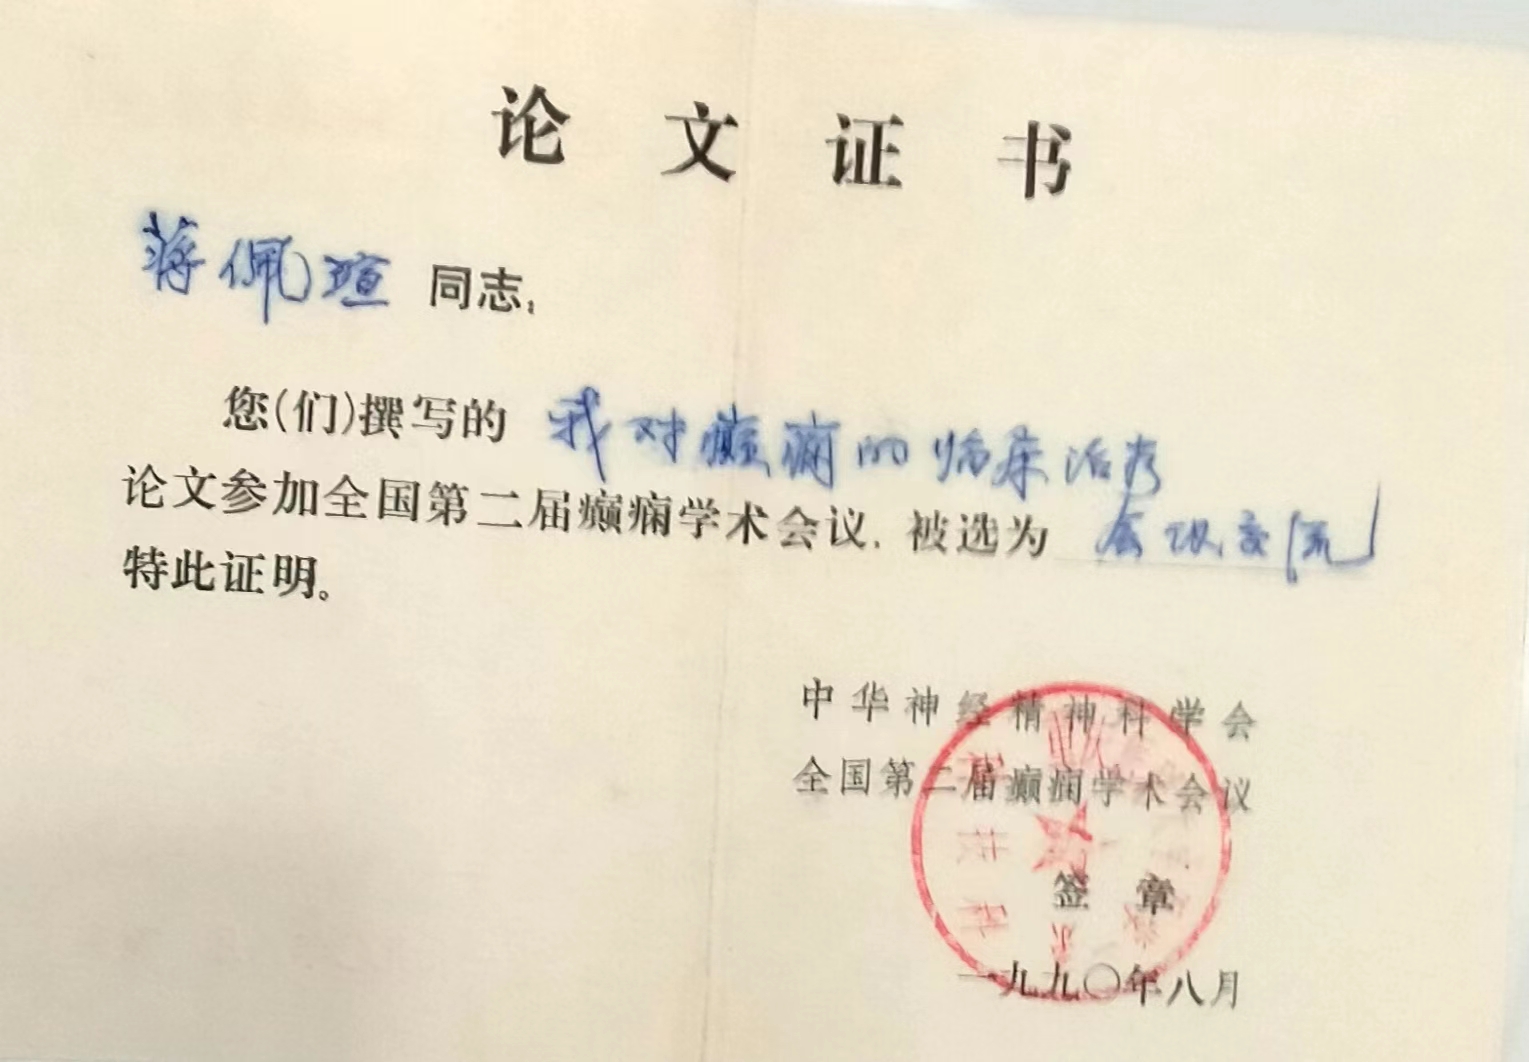 论文证书
蒋佩瑄 同志:
您(们)撰写的 我对癫痫的临床治疗
论文参加全国第二届癫痫学术会议,被选为 会议交流
特此证明。
中华神经精神科学会
全国第二届癫痫学术会议
签 章
一九九〇年八月